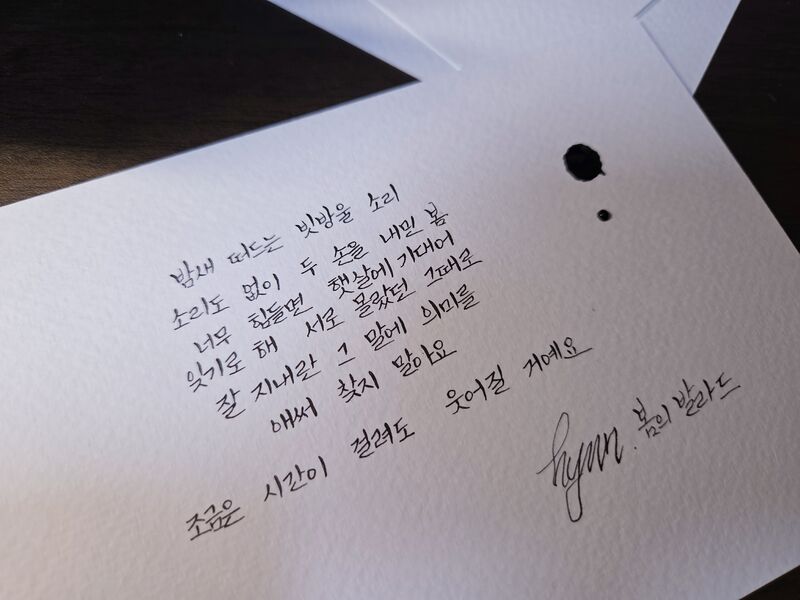 밤새 떠드는 빗방울 소리
소리도 없이 두 손을 내민 봄
너무 힘들면 햇살에 기대어
잊기로 해 서로 몰랐던 그때로
잘 지내란 그 말에 의미를
애써 찾지 말아요
조금은 시간이 걸려도 웃어질 거예요
hynn. 봄의 발라드